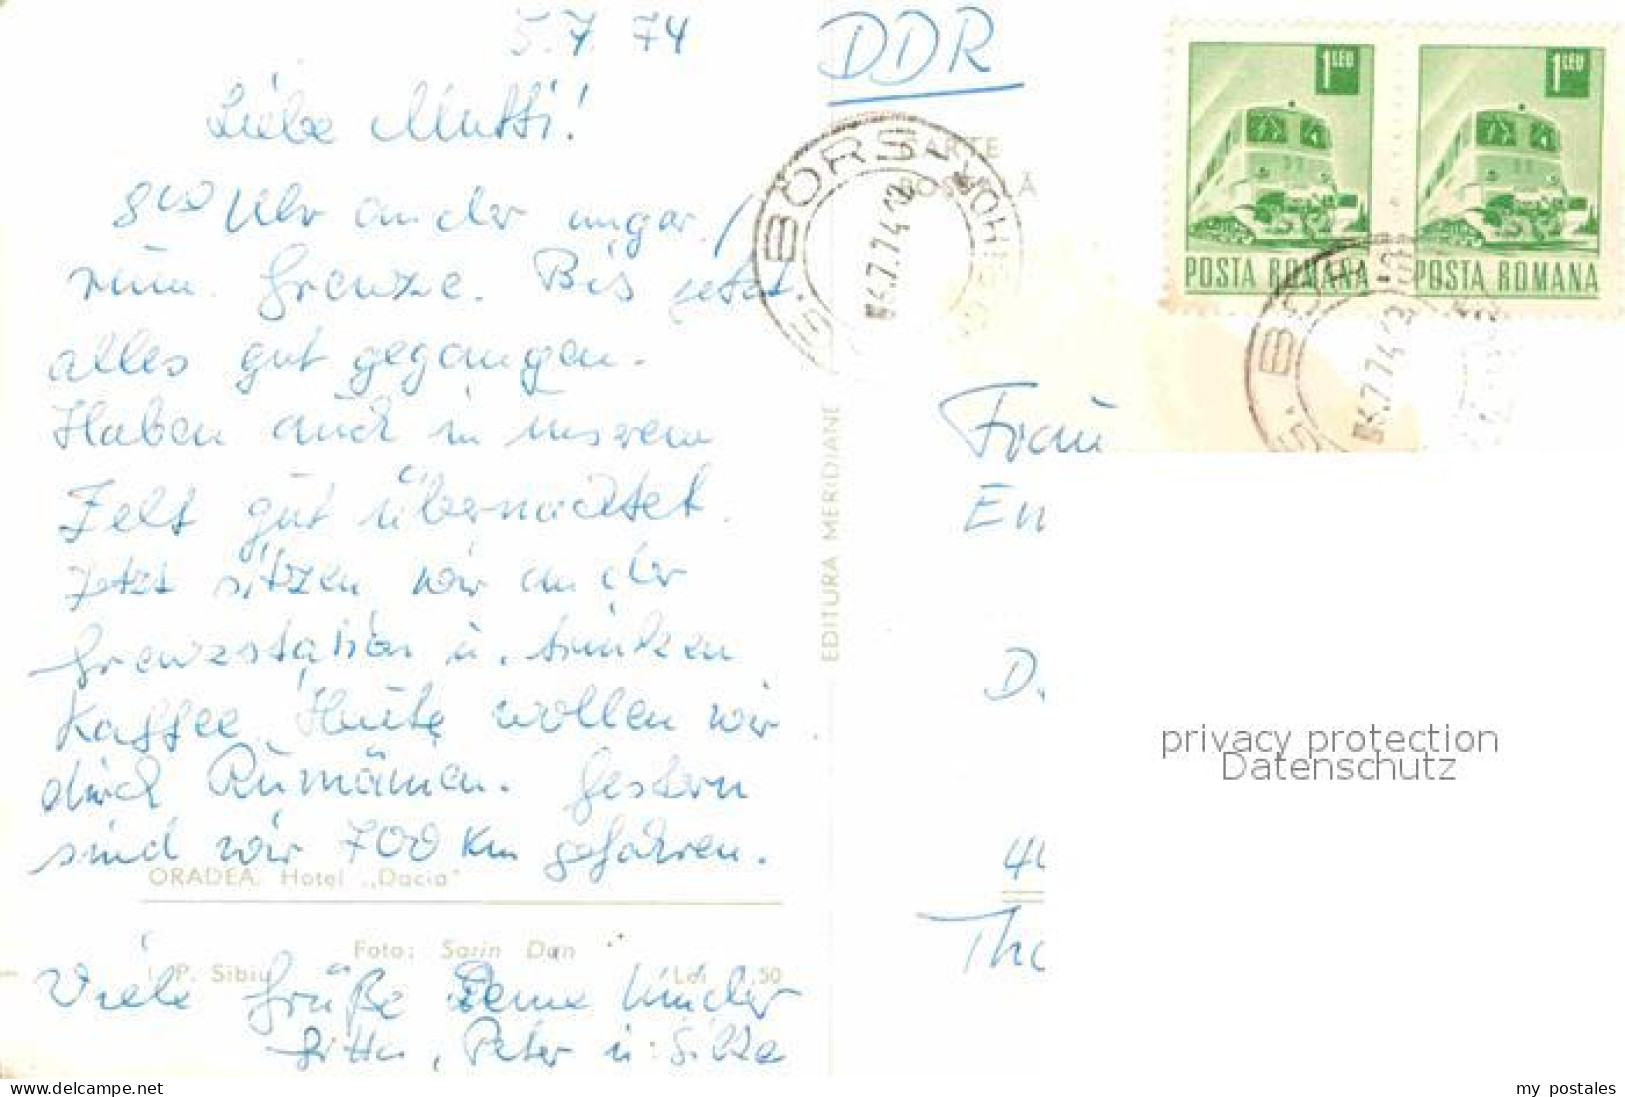 5.7.74
Liebe Mutti!
8⁰⁰ Uhr an der ungar./
rum. Grenze. Bis jetzt
alles gut gegangen.
Haben auch in unserem
Zelt gut übernachtet.
Jetzt sitzen wir an der
Grenzstation u. trinken
Kaffee. Heute wollen wir
durch Rumänien. Gestern
sind wir 700 km gefahren.
ORADEA. Hotel „Dacia"
Foto: Sorin Dan
I. P. Sibiu Lei 1,50
Viele Grüße Deine Kinder
Gitta, Peter u. Silke
EDITURA MERIDIANE
DDR
CARTE
POȘTALĂ
BORȘ
6.7.74 12
1 LEU
POSTA ROMANA
1 LEU
POSTA ROMANA
6.7.74 12
Frau
En
D.
Th
privacy protection
Datenschutz
www.delcampe.net
my_postales